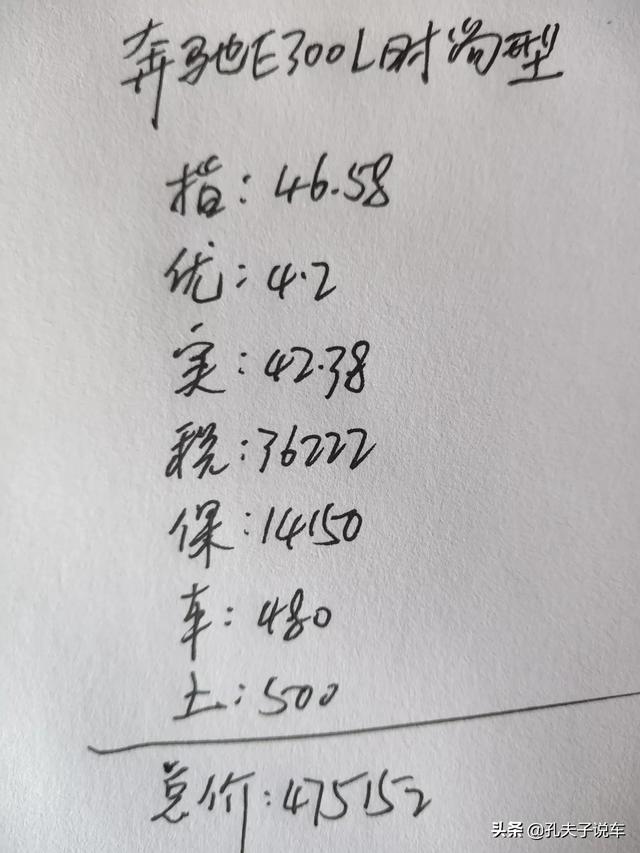 奔驰E300L时尚型
指：46.58
优：4.2
实：42.38
税：36222
保：14150
车：480
上：500
总价：475152
头条 @孔夫子说车